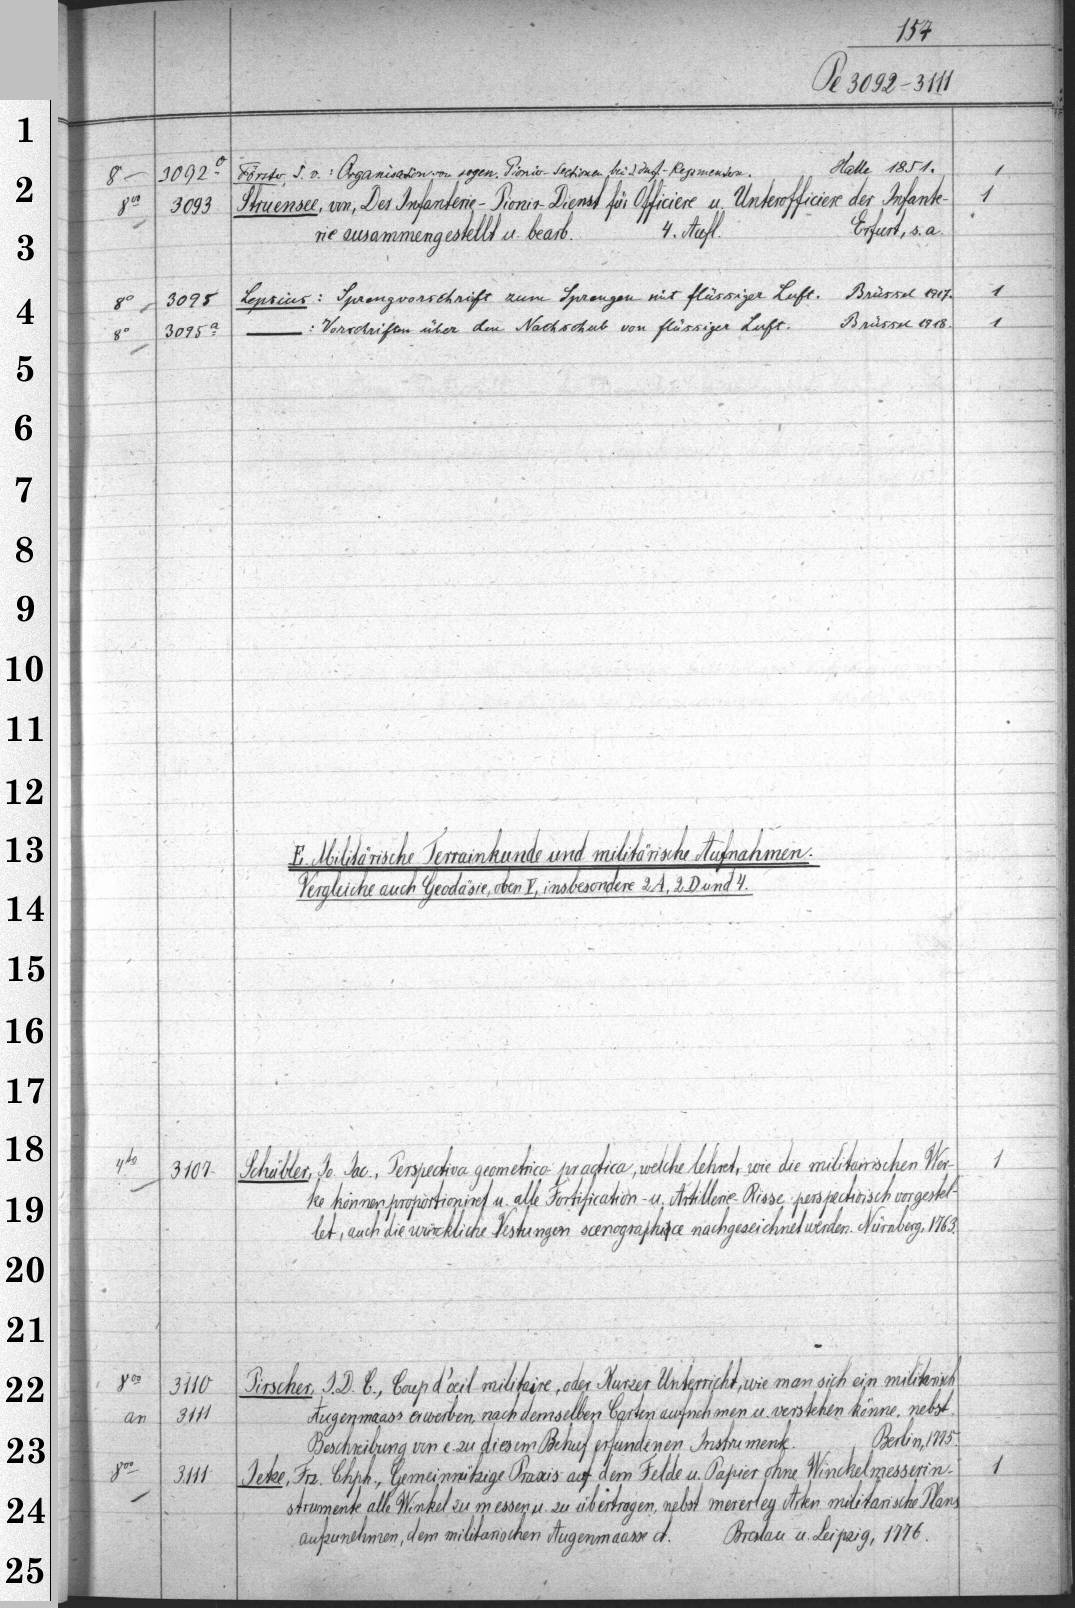 154
Pe 3092-3111
1
2
3
4
5
6
7
8
9
10
11
12
13
14
15
16
17
18
19
20
21
22
23
24
25
8- 3092 a : Organisation von sogen. Pionir-Sectionen bei d. Inf.-Regimentern. Halle 1851. 1
8vo 3093 Struensee, von, Der Infanterie-Pionir-Dienst für Officiere u. Unterofficiere der Infante- 1
rie zusammengestellt u. bearb. 4. Aufl. Erfurt, s.a.
8° 3095 Lepsius: Sprengvorschrift zum Sprengen mit flüssiger Luft. Brüssel 1917. 1
8° 3095a — : Vorschriften über den Nachschub von flüssiger Luft. Brüssel 1918. 1
E. Militärische Terrainkunde und militärische Aufnahmen.
Vergleiche auch Geodäsie, oben V, insbesondere 2A, 2D und 4.
4to 3107 Schübler, Jo. Jac., Perspectiva geometrico-practica, welche lehret, wie die militairischen Wer- 1
ke können proportioniret u. alle Fortification- u. Artillerie-Risse perspectivisch vorgestel-
let, auch die würckliche Vestungen scenographice nachgezeichnet werden. Nürnberg, 1763.
8vo 3110 Pirscher, J.D.C., Coup d'œil militaire, oder Kurzer Unterricht, wie man sich ein militärisch
an 3111 Augenmaass erwerben, nach demselben Carten aufnehmen u. verstehen könne, nebst
Beschreibung von e. zu diesem Behuf erfundenen Instrument. Berlin, 1775.
8vo 3111 Jetze, Frz. Chph., Gemeinnützige Praxis auf dem Felde u. Papier ohne Winckelmesserin- 1
strumente alle Winkel zu messen u. zu übertragen, nebst mererley Arten militärische Plans
aufzunehmen, dem militärischen Augenmaasse d. Breslau u. Leipzig, 1776.